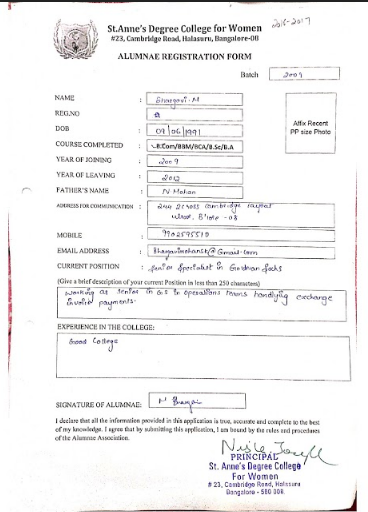 St.Anne's Degree College for Women
#23, Cambridge Road, Halasuru, Bangalore-08
2016-2017
ALUMNAE REGISTRATION FORM
Batch 2009
NAME : Bhargavi.M
REG.NO :
DOB : 09/06/1991
COURSE COMPLETED : B.Com/BBM/BCA/B.Sc/B.A
Affix Recent
PP size Photo
YEAR OF JOINING : 2009
YEAR OF LEAVING : 2012
FATHER'S NAME : N Mohan
ADDRESS FOR COMMUNICATION : cross Cambridge layout
Ulsoor, B'lore - 08
MOBILE : 9902595510
EMAIL ADDRESS : @Gmail.com
CURRENT POSITION : Senior Specialist in Goldman Sachs
(Give a brief description of your current Position in less than 250 characters)
Working as senior in operations teams handling exchange
invoice payments.
EXPERIENCE IN THE COLLEGE:
Good College
SIGNATURE OF ALUMNAE:
I declare that all the information provided in this application is true, accurate and complete to the best
of my knowledge. I agree that by submitting this application, I am bound by the rules and procedures
of the Alumnae Association.
PRINCIPAL
St. Anne's Degree College
For Women
# 23, Cambridge Road, Halasuru
Bangalore - 560 008.